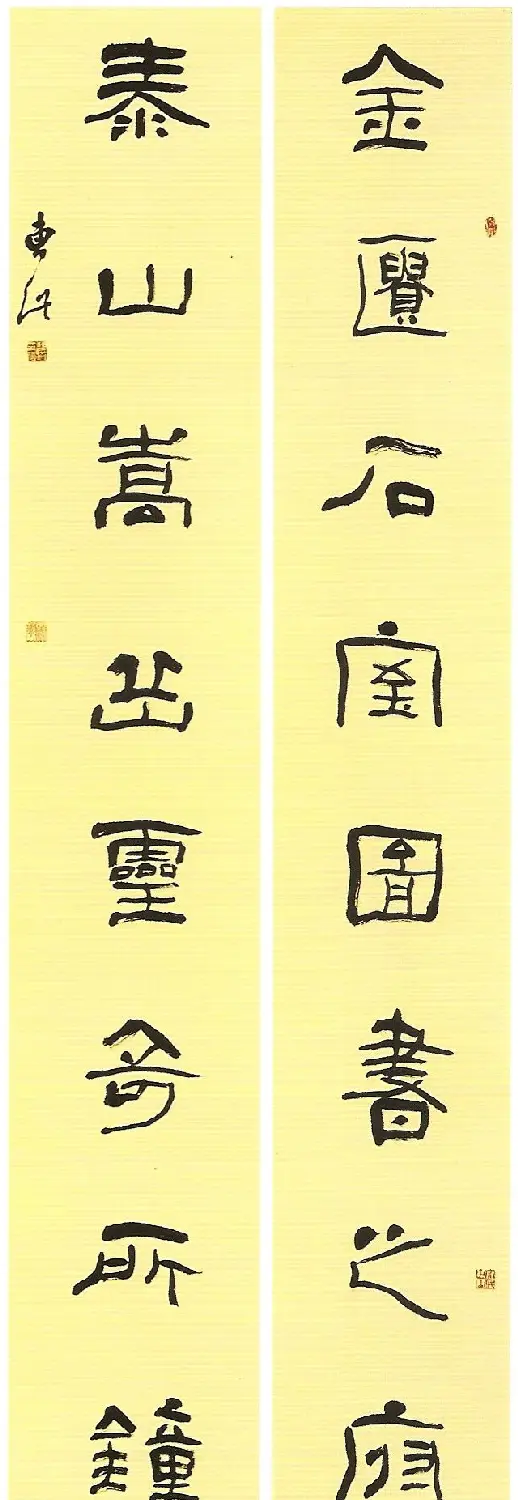 金匱石室圖書之府
泰山嵩岳靈奇所鐘